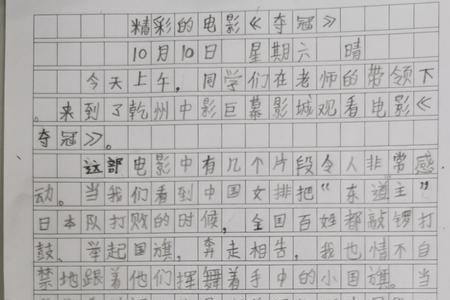 精彩的电影《夺冠》
10月10日 星期六 晴
今天上午,同学们在老师的带领下
。来到了乾州中影巨幕影城观看电影《
夺冠》。
这部电影中有几个片段令人非常感
动。当我们看到中国女排把“东道主”
日本队打败的时候,全国百姓都敲锣打
鼓、举起国旗,奔走相告,我也情不自
禁地跟着他们挥舞着手中的小国旗。当